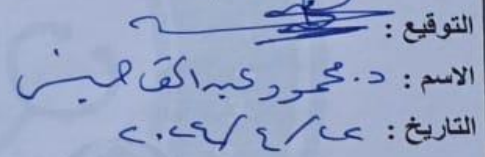 التوقيع :
الاسم : د. محمود عبد الحق حسين
التاريخ : ٢٢/٤/٢٠٢٤